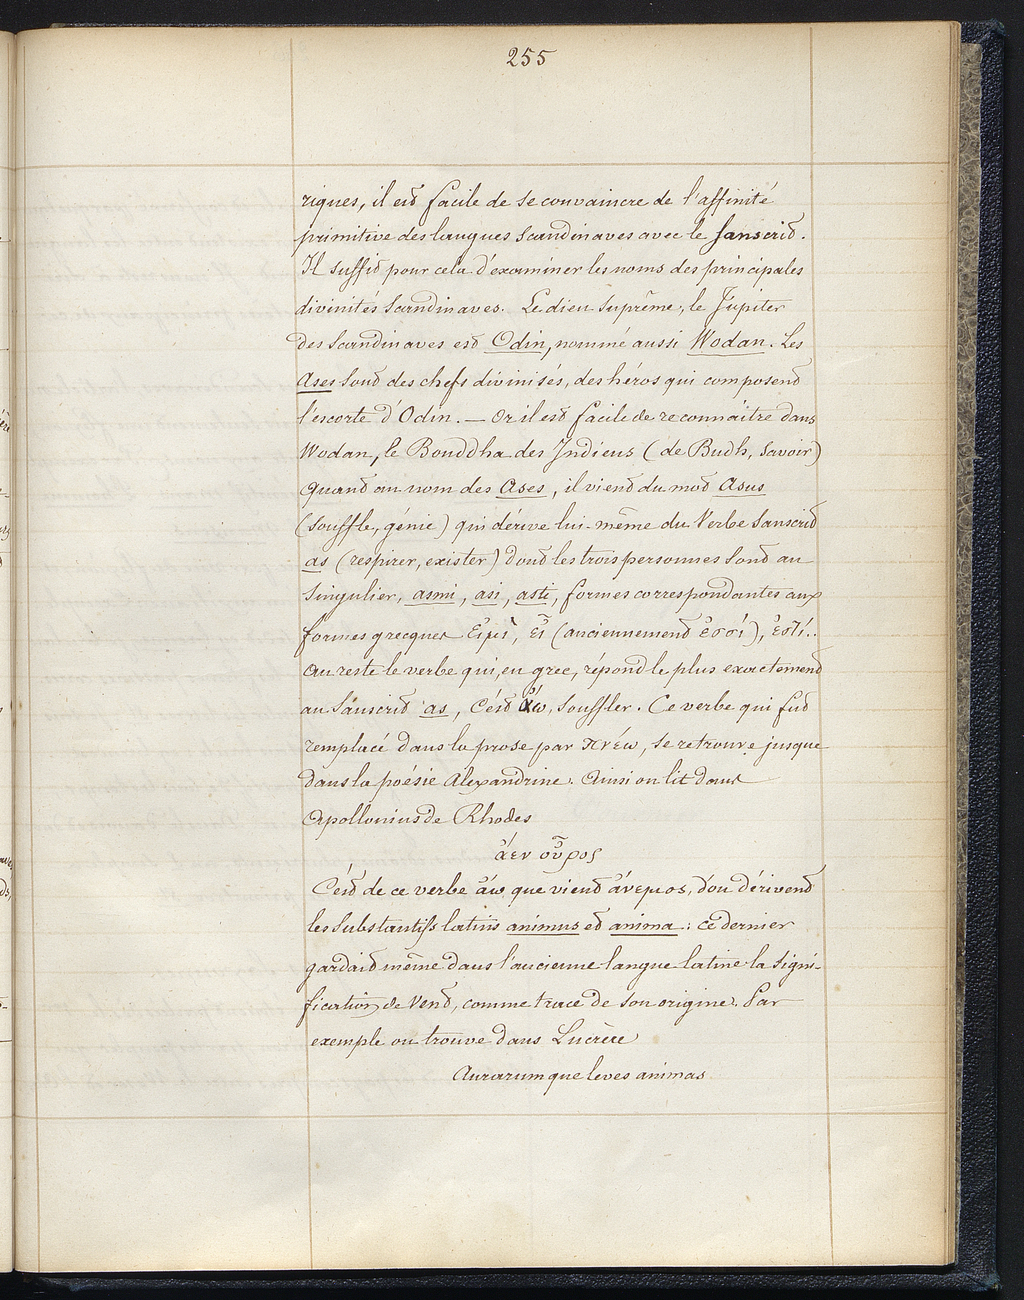 255
riques, il est facile de se convaincre de l'affinité
primitive des langues Scandinaves avec le Sanscrit.
Il suffit pour cela d'examiner les noms des principales
divinités Scandinaves. Le dieu Suprême, le Jupiter
des Scandinaves est Odin, nommé aussi Wodan. Les
Ases sont des chefs divinisés, des héros qui composent
l'escorte d'Odin. — Or il est facile de reconnaître dans
Wodan, le Bouddha des Indiens (de Budh, savoir)
Quant au nom des Ases, il vient du mot Asus
(souffle, génie) qui dérive lui-même du Verbe Sanscrit
as (respirer, exister) dont les trois personnes sont au
Singulier, asmi, asi, asti, formes correspondantes aux
formes grecques εἰμὶ, εἶ (anciennement ἐσσί), ἐστί..
Au reste le verbe qui, en grec, répond le plus exactement
au Sanscrit as, c'est ἄω, souffler. Ce verbe qui fut
remplacé dans la prose par πνέω, se retrouve jusque
dans la poésie Alexandrine. Ainsi on lit dans
Apollonius de Rhodes
ἄεν οὖρος
C'est de ce verbe ἄω que vient ἄνεμος, d'où dérivent
les Substantifs latins animus et anima : ce dernier
gardait même dans l'ancienne langue latine la signi-
fication de Vent, comme trace de son origine. Par
exemple on trouve dans Lucrèce
Aurarumque leves animas